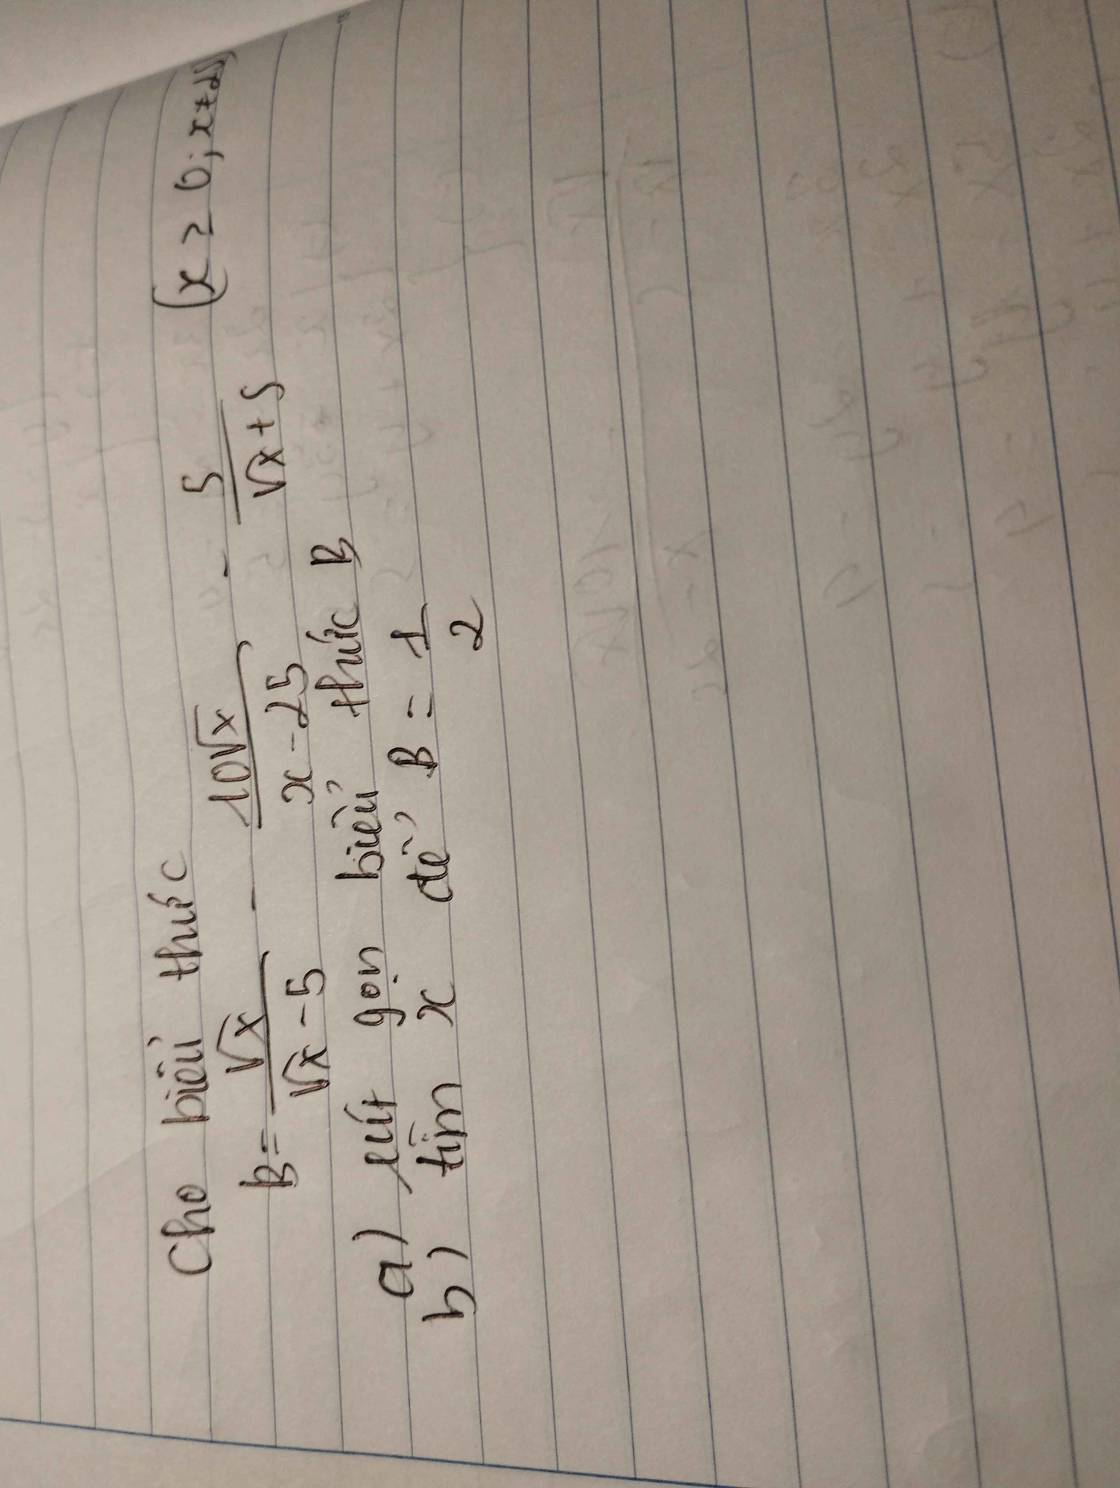 Cho biểu thức
B = \frac{\sqrt{x}}{\sqrt{x} - 5} - \frac{10\sqrt{x}}{x - 25} - \frac{5}{\sqrt{x} + 5} (x ≥ 0; x ≠ 25)
a) rút gọn biểu thức B
b) tìm x để B = \frac{1}{2}